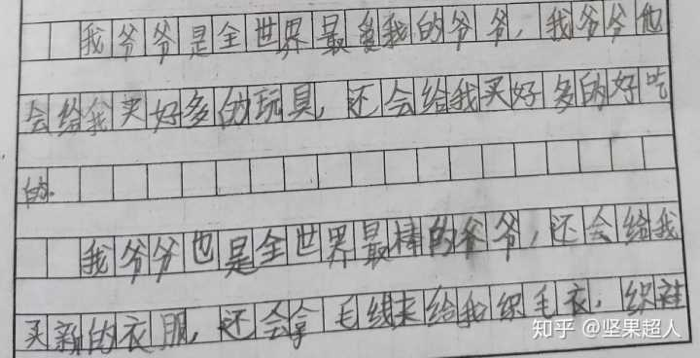 我爷爷是全世界最爱我的爷爷，我爷爷他
会给我买好多的玩具，还会给我买好多的好吃
的.
我爷爷也是全世界最棒的爷爷，还会给我
买新的衣服，还会拿毛线来给我织毛衣，织鞋
知乎 @坚果超人